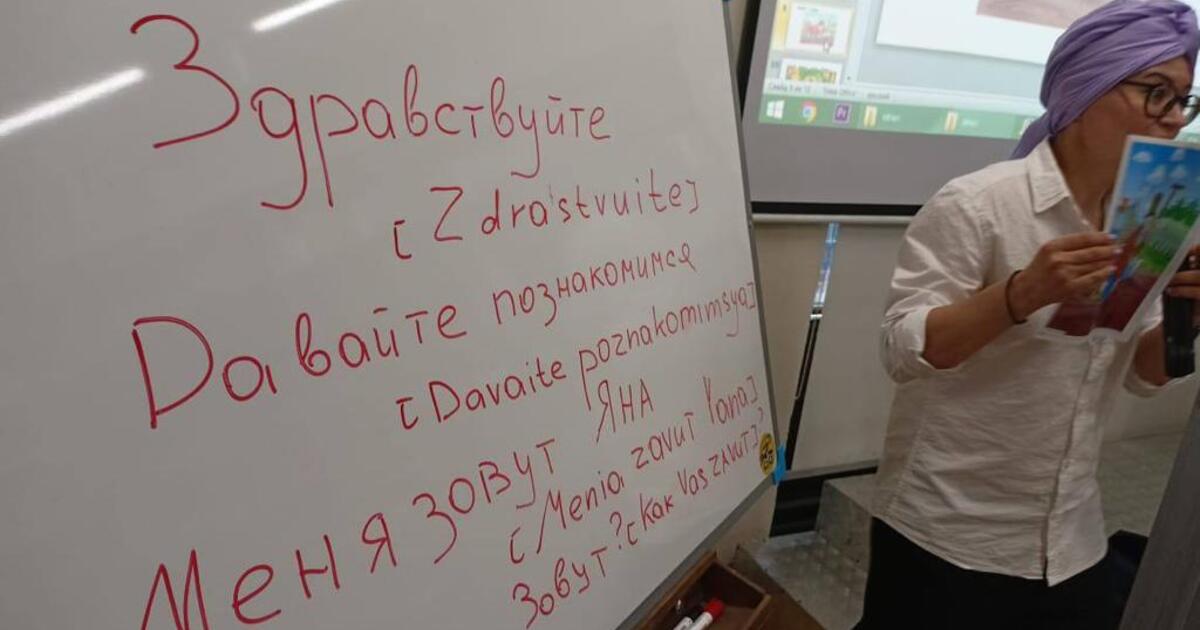 Здравствуйте
[Zdra'stvuite]
Давайте познакомимся
[Davaite poznakomimsya]
Меня зовут ЯНА
[Menia zavut Yana]
Зовут? [Kak Vas zavut]?